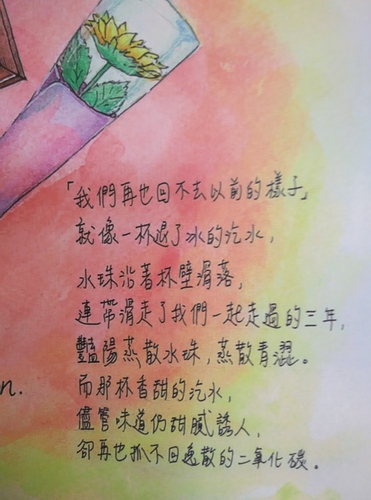 「我們再也回不去以前的樣子」
就像一杯退了冰的汽水，
水珠沿著杯壁滑落，
連帶滑走了我們一起走過的三年，
豔陽蒸散水珠，蒸散青澀。
而那杯香甜的汽水，
儘管味道仍甜膩誘人，
卻再也抓不回逸散的二氧化碳。
n.